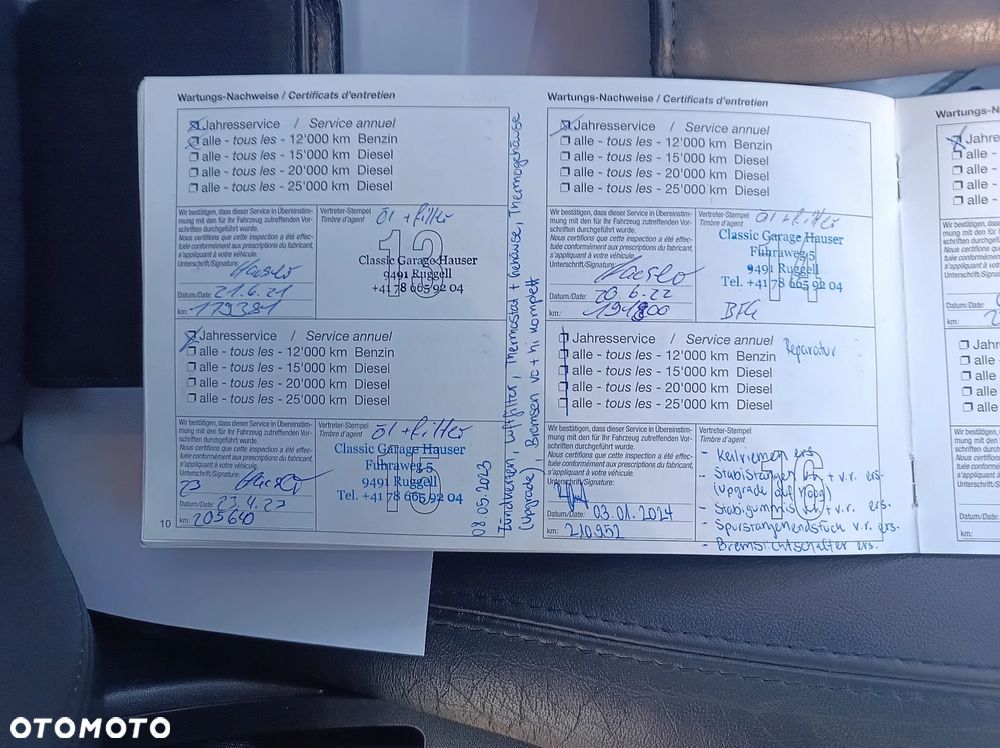 Wartungs-Nachweise / Certificats d'entretien
Jahresservice / Service annuel
alle - tous les - 12'000 km Benzin
alle - tous les - 15'000 km Diesel
alle - tous les - 20'000 km Diesel
alle - tous les - 25'000 km Diesel
Wir bestätigen, dass dieser Service in Übereinstim-
mung mit den für Ihr Fahrzeug zutreffenden Vor-
schriften durchgeführt wurde.
Nous certifions que cette inspection a été effec-
tuée conformément aux prescriptions du fabricant,
s'appliquant à votre véhicule.
Unterschrift/Signature:
Datum/Date: 21.6.21
km: 179381
Vertreter-Stempel
Timbre d'agent
Öl + Filter
13
Classic Garage Hauser
9491 Ruggell
+41 78 665 92 04
Jahresservice / Service annuel
alle - tous les - 12'000 km Benzin
alle - tous les - 15'000 km Diesel
alle - tous les - 20'000 km Diesel
alle - tous les - 25'000 km Diesel
Wir bestätigen, dass dieser Service in Übereinstim-
mung mit den für Ihr Fahrzeug zutreffenden Vor-
schriften durchgeführt wurde.
Nous certifions que cette inspection a été effec-
tuée conformément aux prescriptions du fabricant,
s'appliquant à votre véhicule.
Unterschrift/Signature:
Datum/Date: 23.4.23
km: 205640
Vertreter-Stempel
Timbre d'agent
Öl + Filter
15
Classic Garage Hauser
Fuhraweg 5
9491 Ruggell
Tel. +41 78 665 92 04
10
08.05.2023
Zündkerzen, Luftfilter, Thermostat + Gehäuse, Thermogehäuse
(Upgrade), Bremsen vo + hi komplett
Wartungs-Nachweise / Certificats d'entretien
Jahresservice / Service annuel
alle - tous les - 12'000 km Benzin
alle - tous les - 15'000 km Diesel
alle - tous les - 20'000 km Diesel
alle - tous les - 25'000 km Diesel
Wir bestätigen, dass dieser Service in Übereinstim-
mung mit den für Ihr Fahrzeug zutreffenden Vor-
schriften durchgeführt wurde.
Nous certifions que cette inspection a été effec-
tuée conformément aux prescriptions du fabricant,
s'appliquant à votre véhicule.
Unterschrift/Signature:
Datum/Date: 20.6.22
km:
Vertreter-Stempel
Timbre d'agent
Öl + Filter
14
Classic Garage Hauser
Fuhraweg 5
9491 Ruggell
Tel. +41 78 665 92 04
Jahresservice / Service annuel
alle - tous les - 12'000 km Benzin
alle - tous les - 15'000 km Diesel
alle - tous les - 20'000 km Diesel
alle - tous les - 25'000 km Diesel
Reparatur
Wir bestätigen, dass dieser Service in Übereinstim-
mung mit den für Ihr Fahrzeug zutreffenden Vor-
schriften durchgeführt wurde.
Nous certifions que cette inspection a été effec-
tuée conformément aux prescriptions du fabricant,
s'appliquant à votre véhicule.
Unterschrift/Signature:
Datum/Date: 03.01.2024
km: 210952
Vertreter-Stempel
Timbre d'agent
16
- Keilriemen ers.
- Stabistangen + v.r. ers.
(Upgrade auf Moog)
- Stabigummis + v.r. ers.
- Spurstangenendstück v.r. ers.
- Bremslichtschalter ers.
Wartungs-N
Jahre
alle -
alle -
alle -
alle -
Wir bestätigen,
mung mit den f
schriften durchg
Nous certifions
tuée conformé
s'appliquant à
Unterschrift/Sign
Datum/Date:
km:
Jahre
alle -
alle -
alle -
alle -
Wir bestätigen,
mung mit den f
schriften durchg
Nous certifions
tuée conformé
s'appliquant à
Unterschrift/Sign
Datum/Date:
km:
OTOMOTO